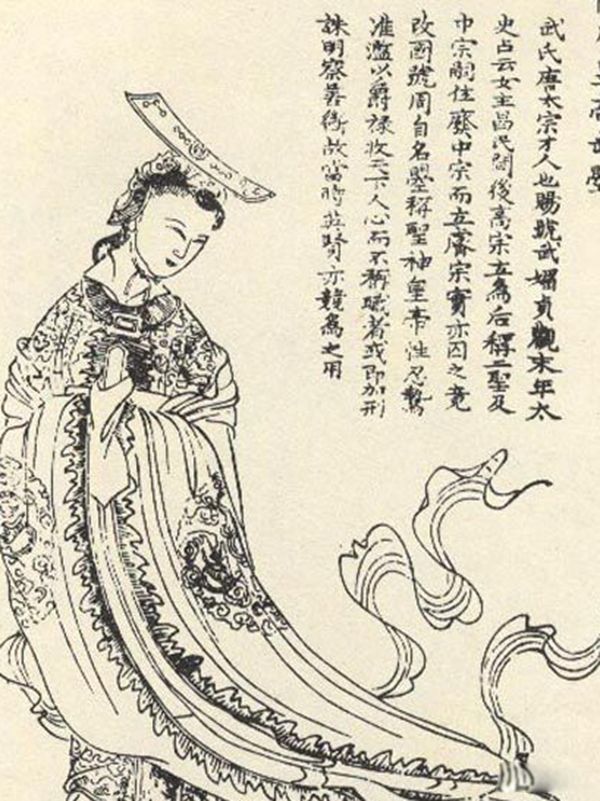 武氏唐太宗才人也賜號武媚貞觀末年太
史占云女主昌民間後高宗立為后稱二聖及
中宗嗣位廢中宗而立睿宗實亦囚之竟
改國號周自名曌稱聖神皇帝性忍鷙
准濫以爵祿收天下人心而不稱職者或即加刑
誅明察善御故當時英賢亦競為之用